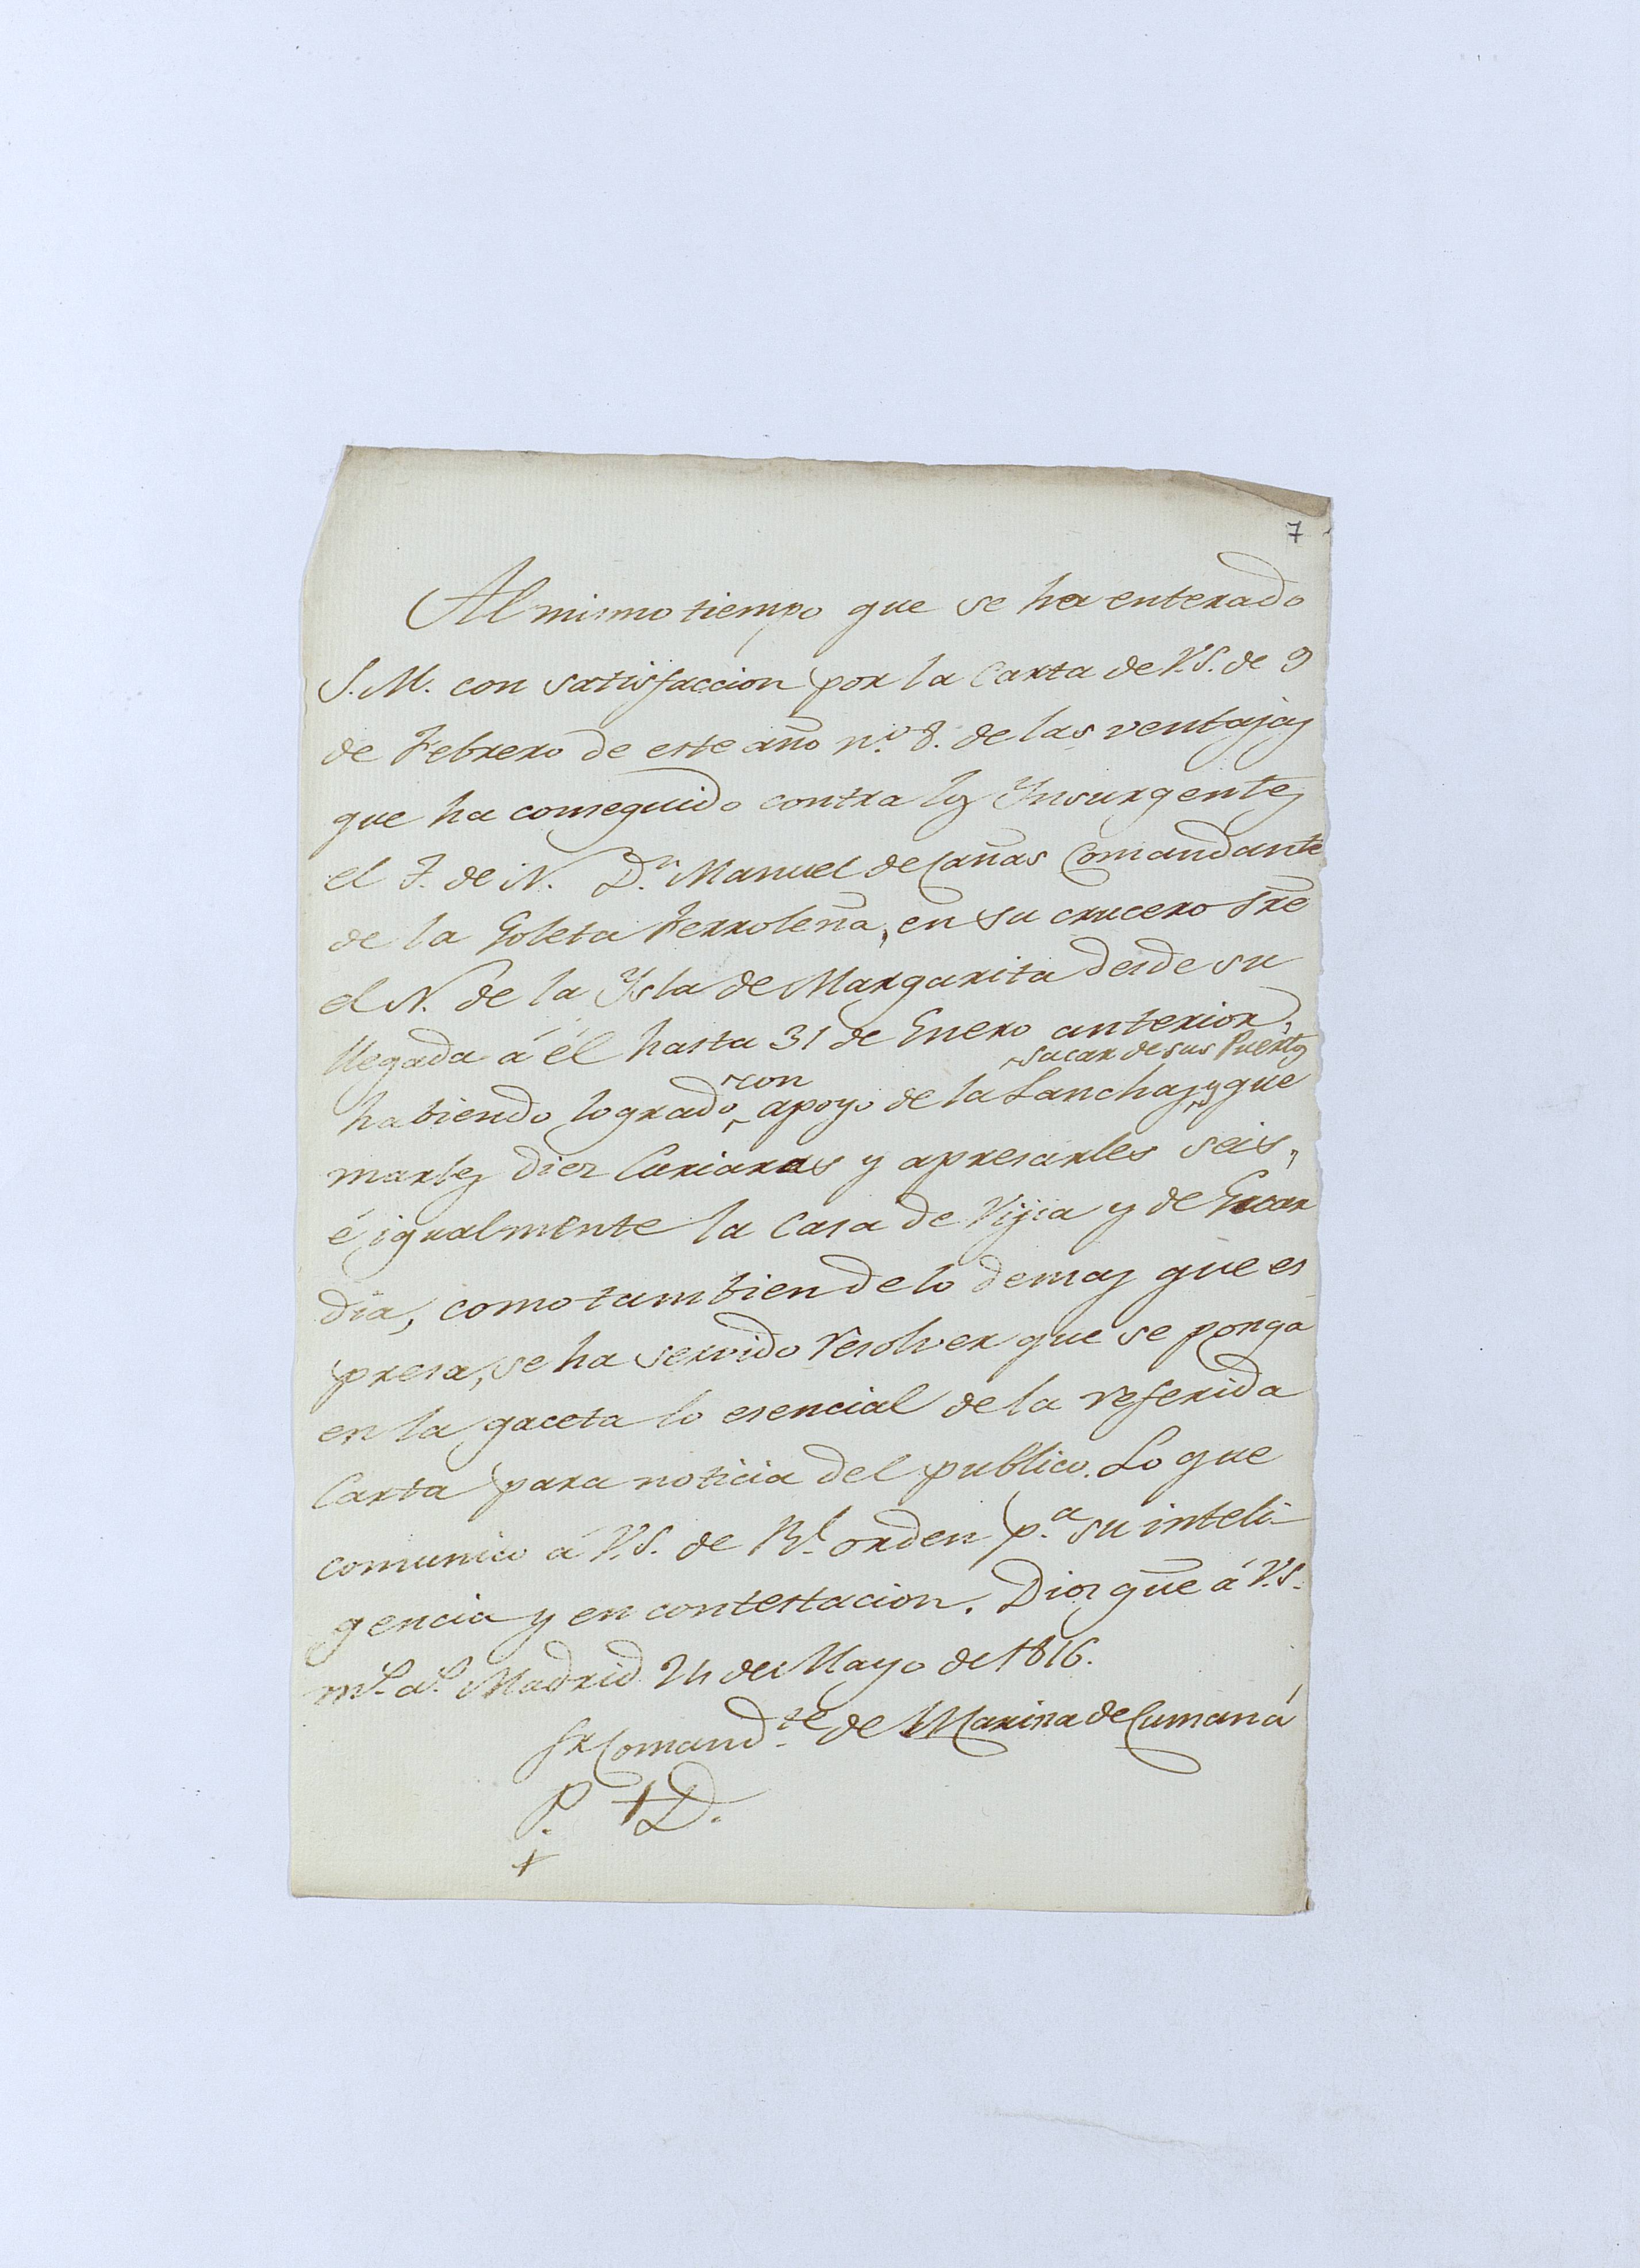 7
Al mismo tiempo que se ha enterado
S.M. con satisfaccion por la Carta de V.S. de 9
de Febrero de este año n.º 8. de las ventajas
que ha conseguido contra los Ynsurgentes
el T. de N. D.n Manuel de Cañas Comandante
de la Goleta Ferroleña, en su crucero sre
el N. de la Ysla de Margarita desde su
llegada á él hasta 31 de Enero anterior,
sacar de sus Puertos
con
habiendo logrado apoyo de la Lanchas, y que
marles diez Curiaras y apresarles seis,
é igualmente la Casa de Vijia y de Guar
dia, como tambien de lo demas que es
presa, se ha servido resolver que se ponga
en la gaceta lo esencial de la referida
Carta para noticia del publico. Lo que
comunico á V.S. de R.l orden p.a su inteli-
gencia y en contestacion. Dios gue á V.S.
m.s a.s Madrid 24 de Mayo de 1816.
Sr Comand.te de Marina de Cumaná
P. D.